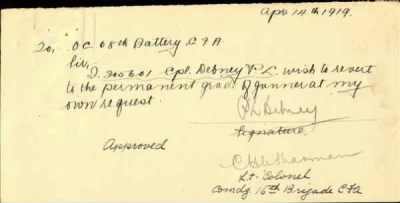 Apr. 14th 1919.
To, O.C. 68th Battery C.F.A.
Sir,
I. 300601 Cpl. Debney P. L. wish to revert
to the permanent grade of gunner at my
own request.
P L Debney
Signature.
Approved
Lt. Colonel
Comdg 16th Brigade CFA